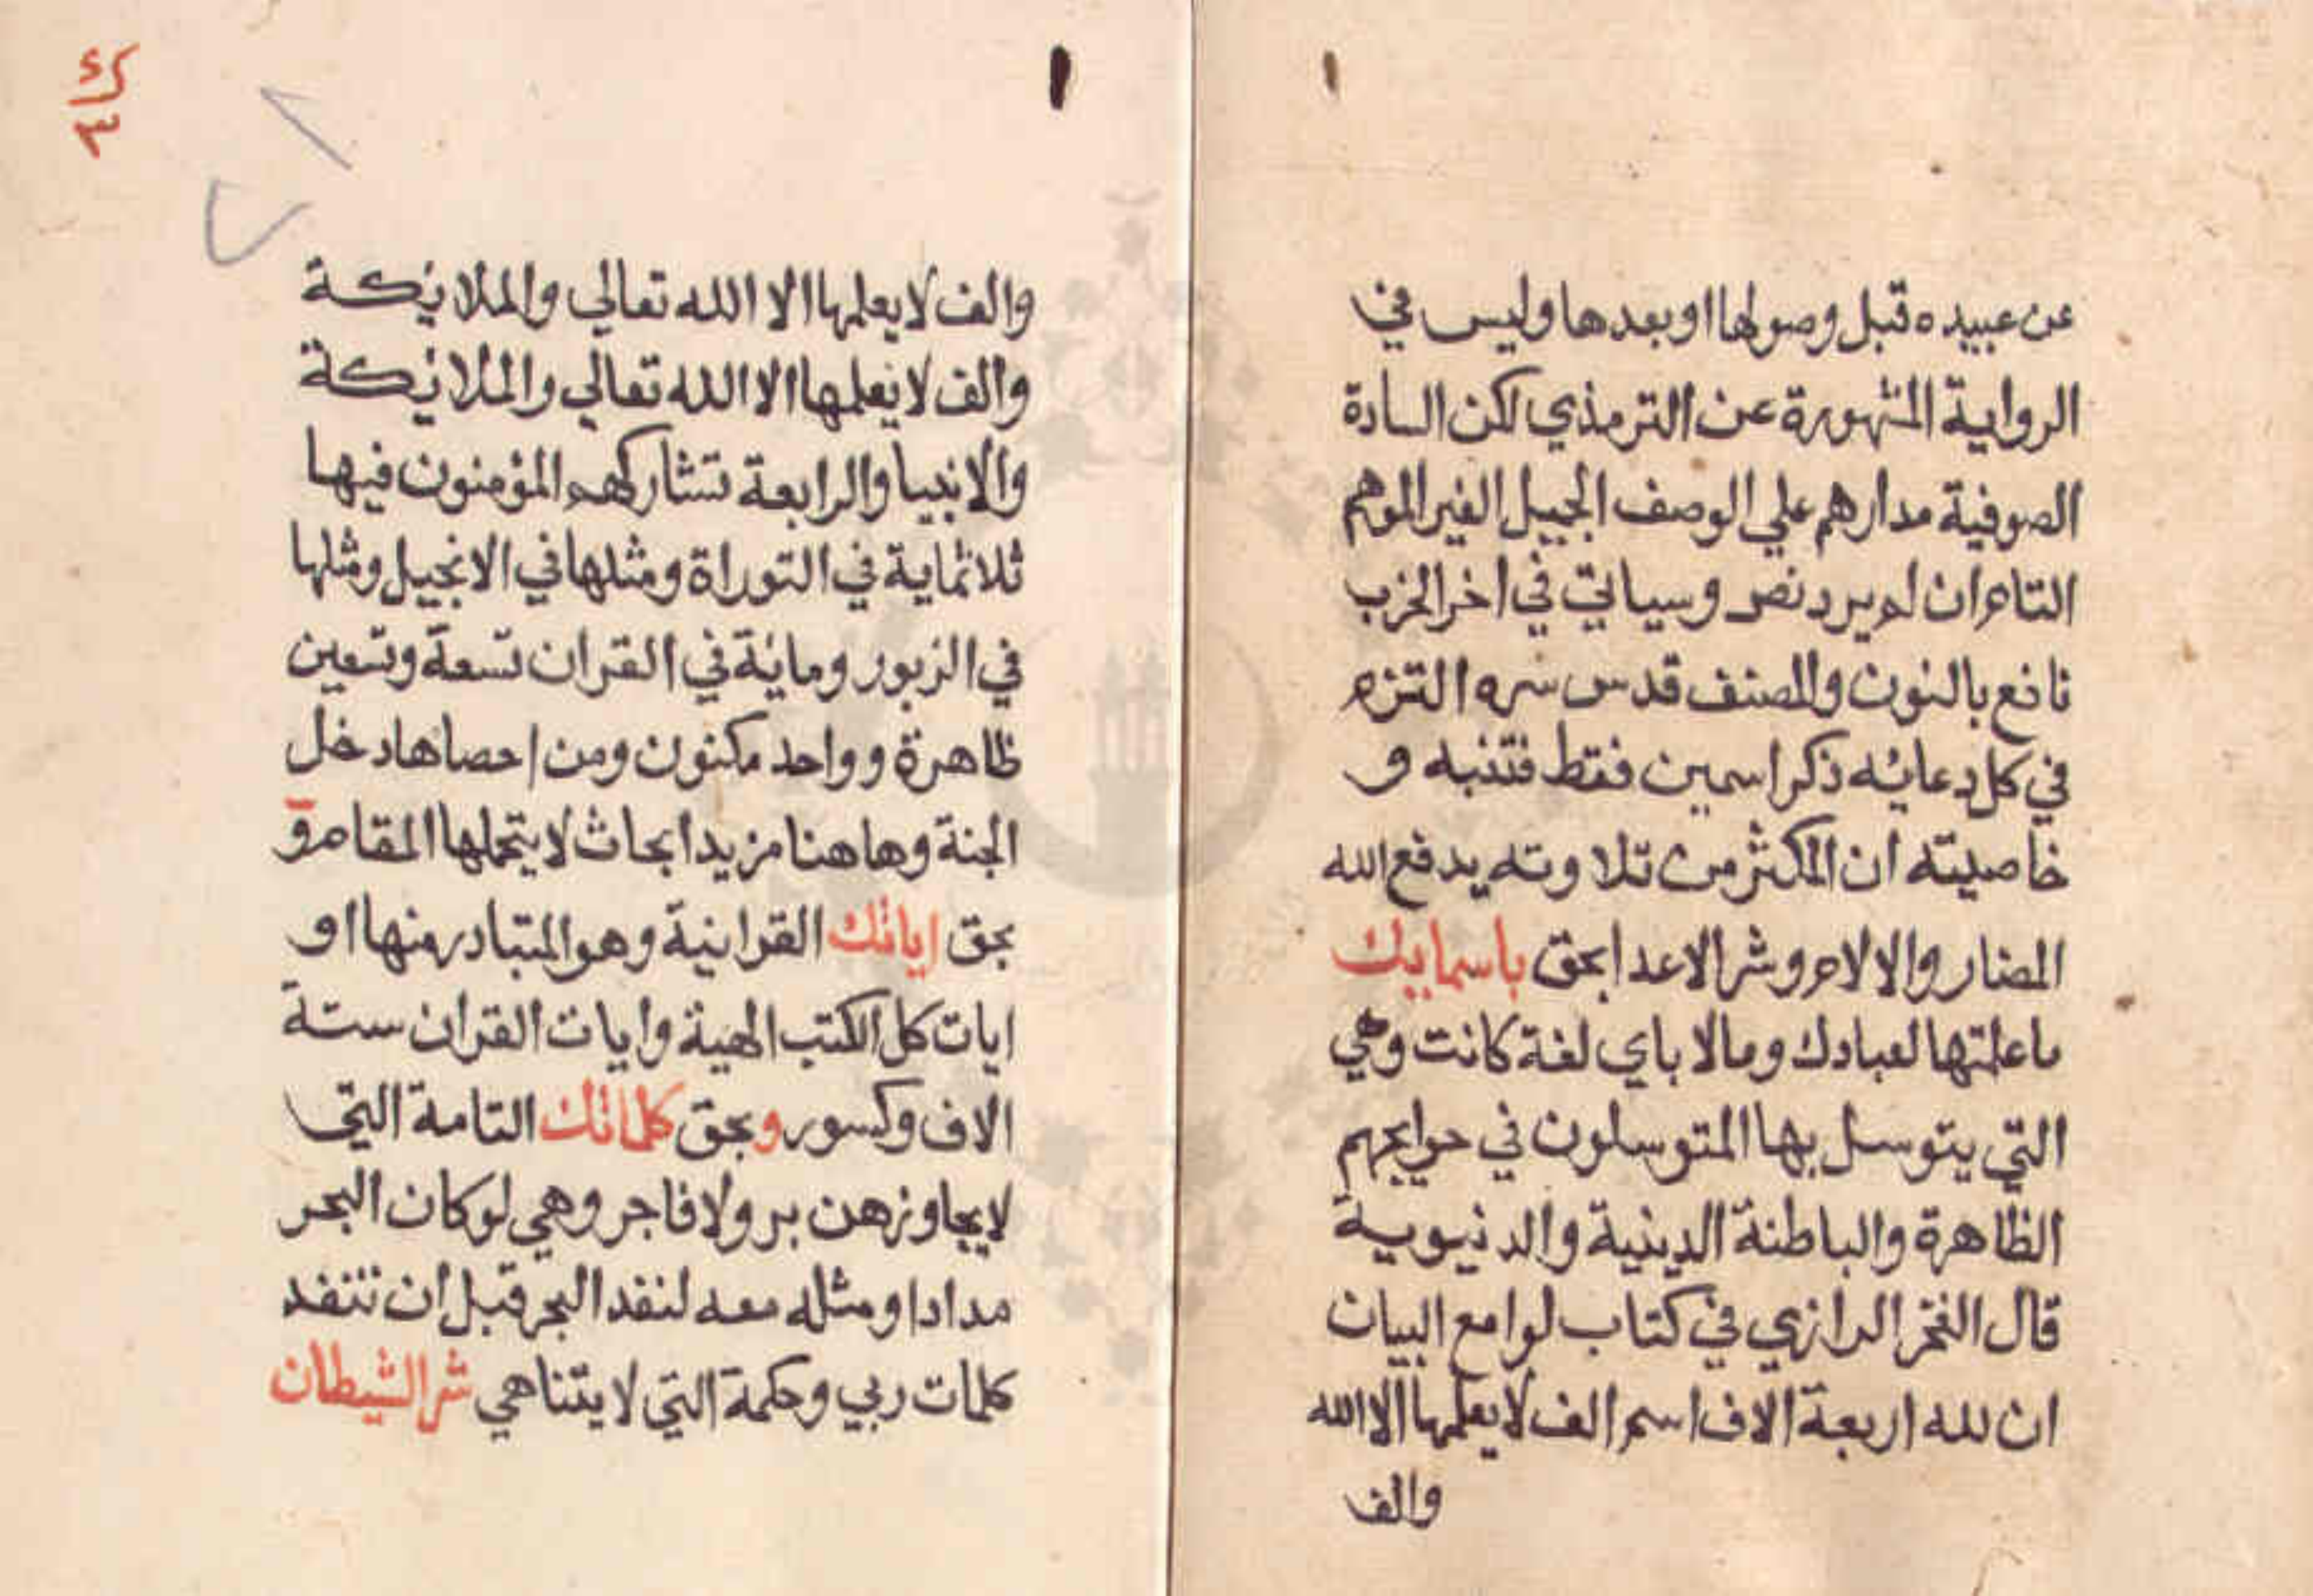 عن عبيده قبل وصولها او بعدها وليس في
الرواية المشهورة عن الترمذي لكن السادة
الصوفية مدارهم علي الوصف الجميل الغير الموهم
التام ان لم يرد نص وسياتي في اخر الحزب
نافع بالنون والمصنف قدس سره التزم
في كل دعائه ذكر اسمين فقط فتنبه و
خاصيته ان المكثر من تلاوته يدفع الله
المضار والالام وشر الاعدا بحق باسمايك
ما علمتها لعبادك ومالا باي لغة كانت وهي
التي يتوسل بها المتوسلون في حوايجهم
الظاهرة والباطنة الدينية والدنيوية
قال الفخر الرازي في كتاب لوامع البيان
ان لله اربعة الاف اسم الف لا يعلمها الا الله
والف
والف لا يعلمها الا الله تعالي والملائكة
والف لا يعلمها الا الله تعالي والملائكة
والانبيا والرابعة تشاركهم المؤمنون فيها
ثلاثماية في التوراة ومثلها في الانجيل ومثلها
في الزبور ومائة في القران تسعة وتسعين
ظاهرة وواحد مكنون ومن احصاها دخل
الجنة وهاهنا مزيد ابحاث لا يتحملها المقام و
بحق اياتك القرانية وهو المتبادر منها او
ايات كل الكتب الهية وايات القران ستة
الاف وكسور وبحق كلماتك التامة التي
لا يجاوزهن بر ولا فاجر وهي لو كان البحر
مدادا ومثله معه لنفد البحر قبل ان تنفد
كلمات ربي وحكمة التي لا يتناهي شر الشيطان